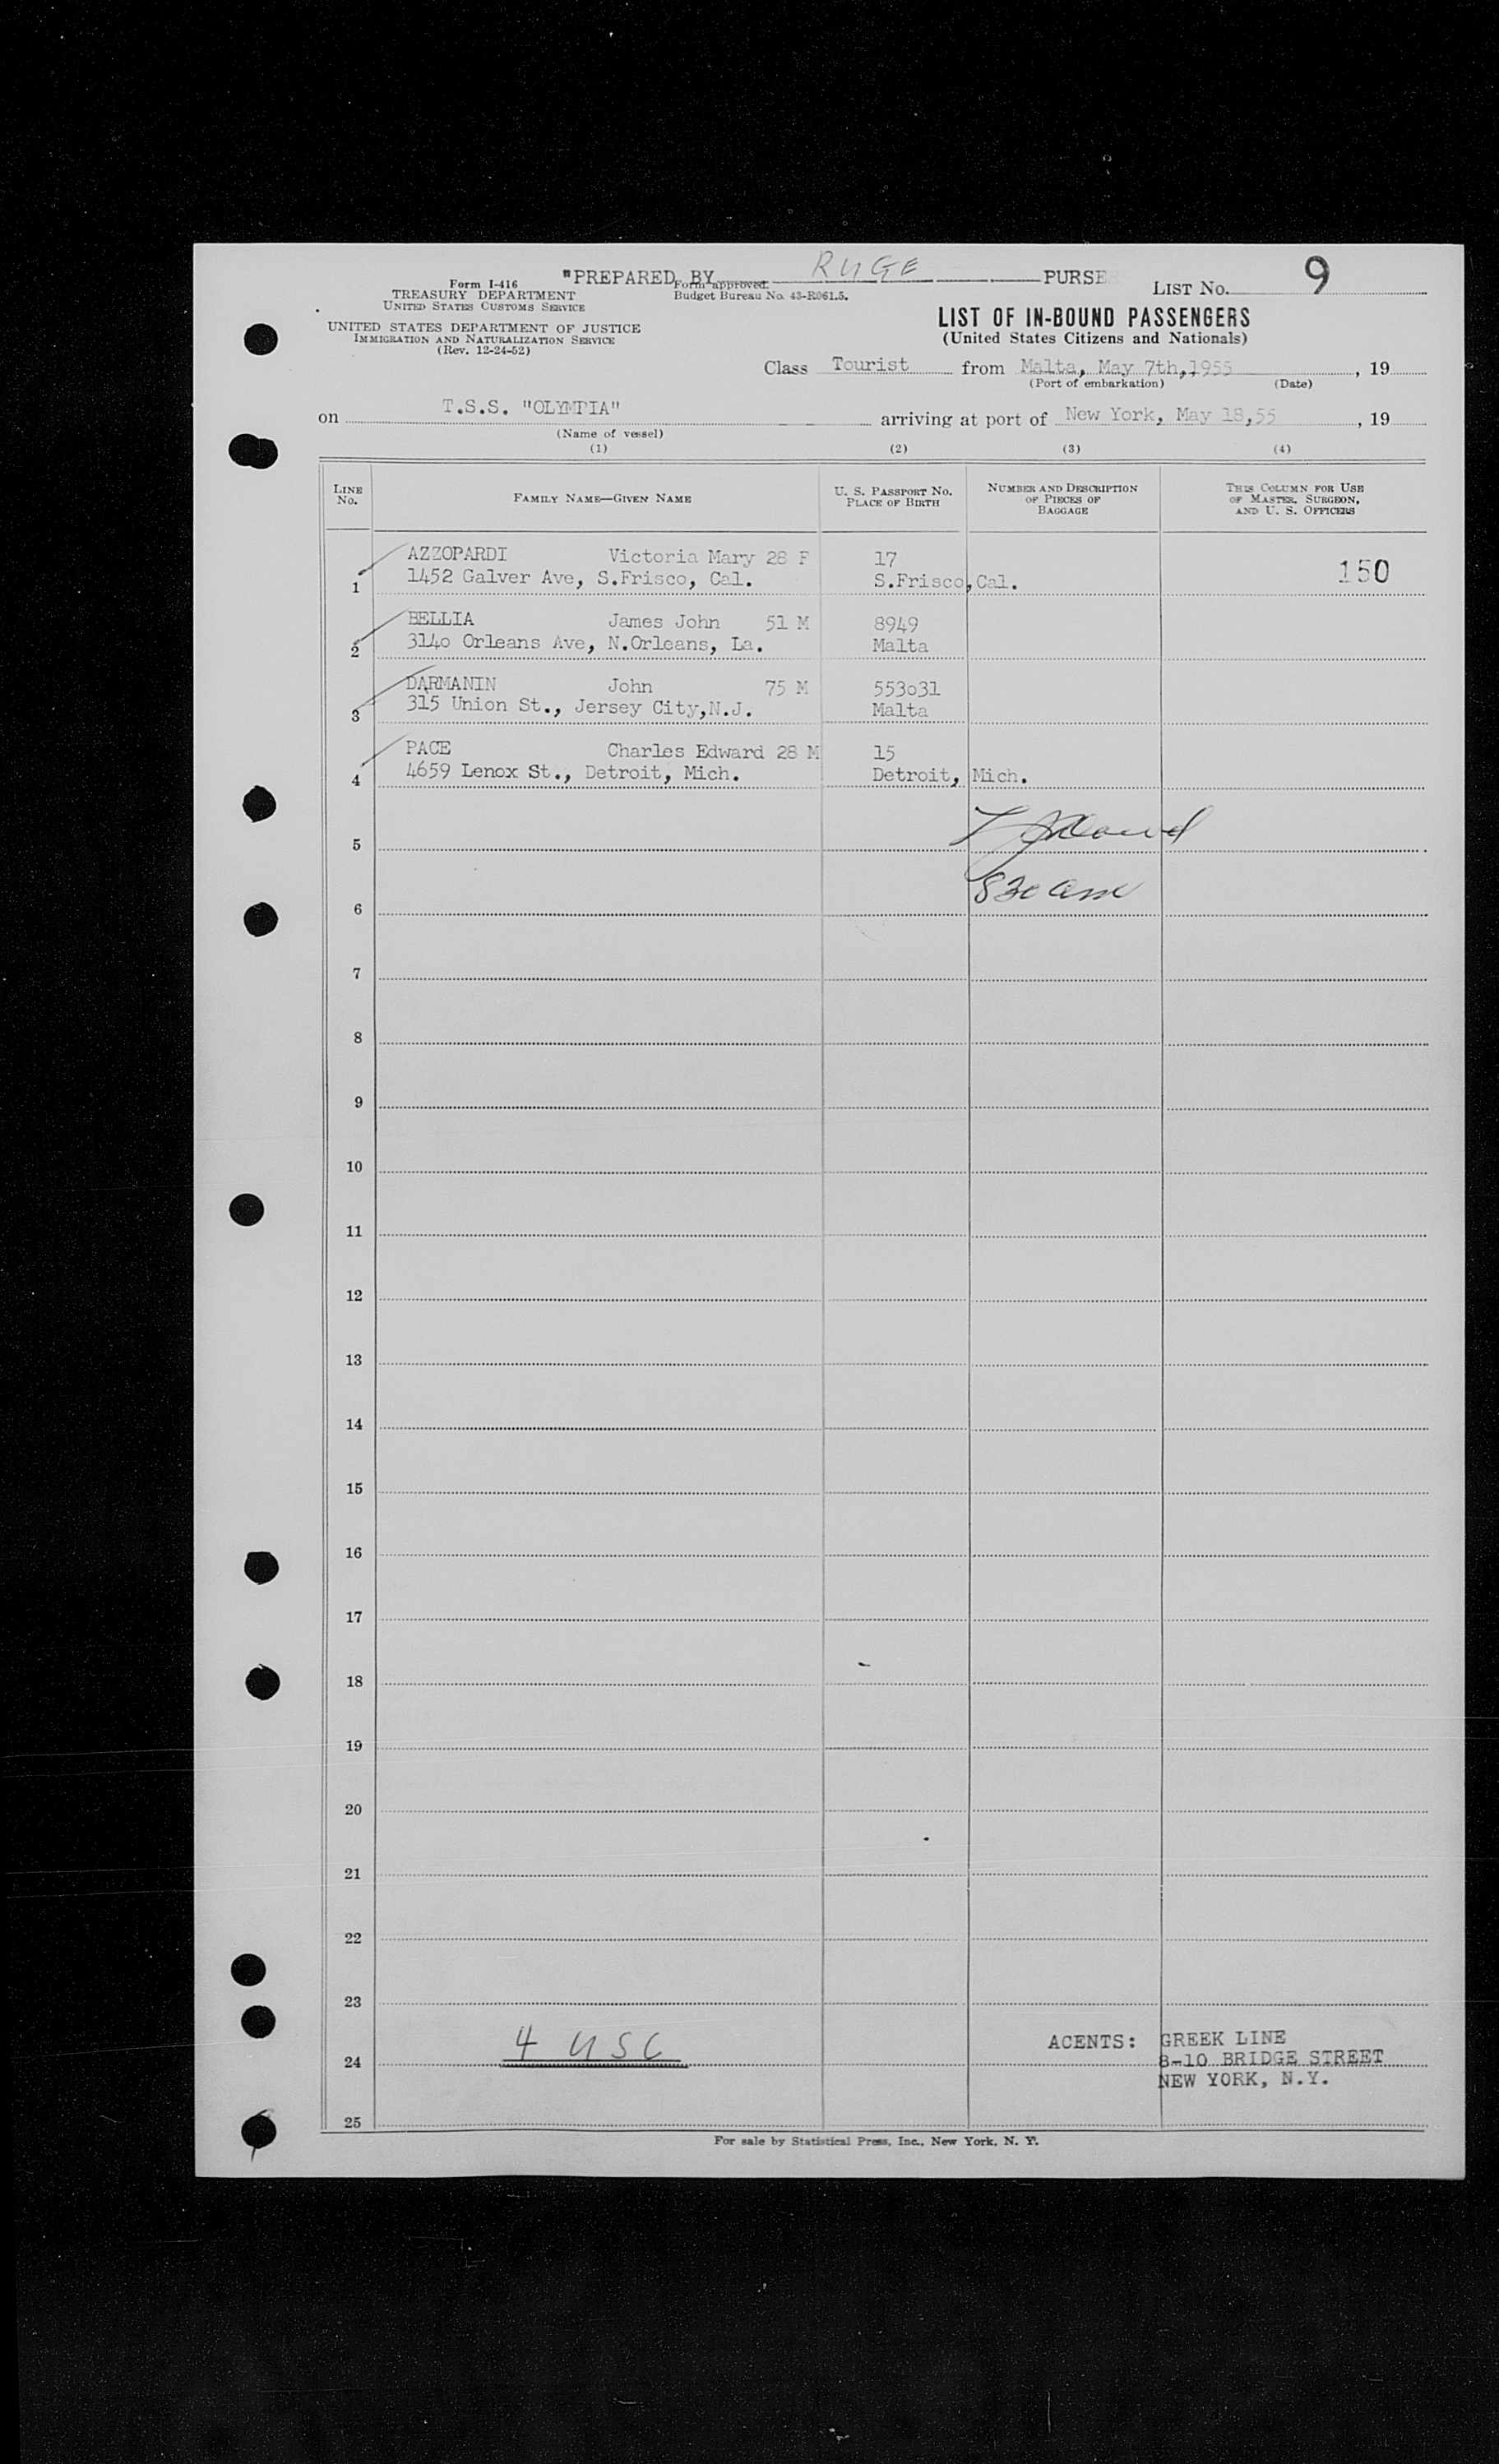 "PREPARED BY RUGE PURSE
Form I-416
Form approved.
TREASURY DEPARTMENT
Budget Bureau No. 43-R061.5.
UNITED STATES CUSTOMS SERVICE
LIST No. 9
UNITED STATES DEPARTMENT OF JUSTICE
IMMIGRATION AND NATURALIZATION SERVICE
(Rev. 12-24-52)
LIST OF IN-BOUND PASSENGERS
(United States Citizens and Nationals)
Class Tourist from Malta, May 7th,1955, 19
(Port of embarkation) (Date)
on T.S.S. "OLYMPIA" arriving at port of New York, May 18,55, 19
(Name of vessel)
(1) (2) (3) (4)
LINE No. FAMILY NAME—GIVEN NAME U. S. PASSPORT No. PLACE OF BIRTH NUMBER AND DESCRIPTION OF PIECES OF BAGGAGE THIS COLUMN FOR USE OF MASTER, SURGEON, AND U. S. OFFICERS
AZZOPARDI Victoria Mary 28 F 17
1 1452 Galver Ave, S.Frisco, Cal. S.Frisco,Cal. 150
BELLIA James John 51 M 8949
2 314o Orleans Ave, N.Orleans, La. Malta
DARMANIN John 75 M 553o31
3 315 Union St., Jersey City,N.J. Malta
PACE Charles Edward 28 M 15
4 4659 Lenox St., Detroit, Mich. Detroit, Mich.
5
6 830 am
7
8
9
10
11
12
13
14
15
16
17
18
19
20
21
22
23
24 4 USC
ACENTS: GREEK LINE
8-10 BRIDGE STREET
NEW YORK, N.Y.
25
For sale by Statistical Press, Inc., New York, N. Y.